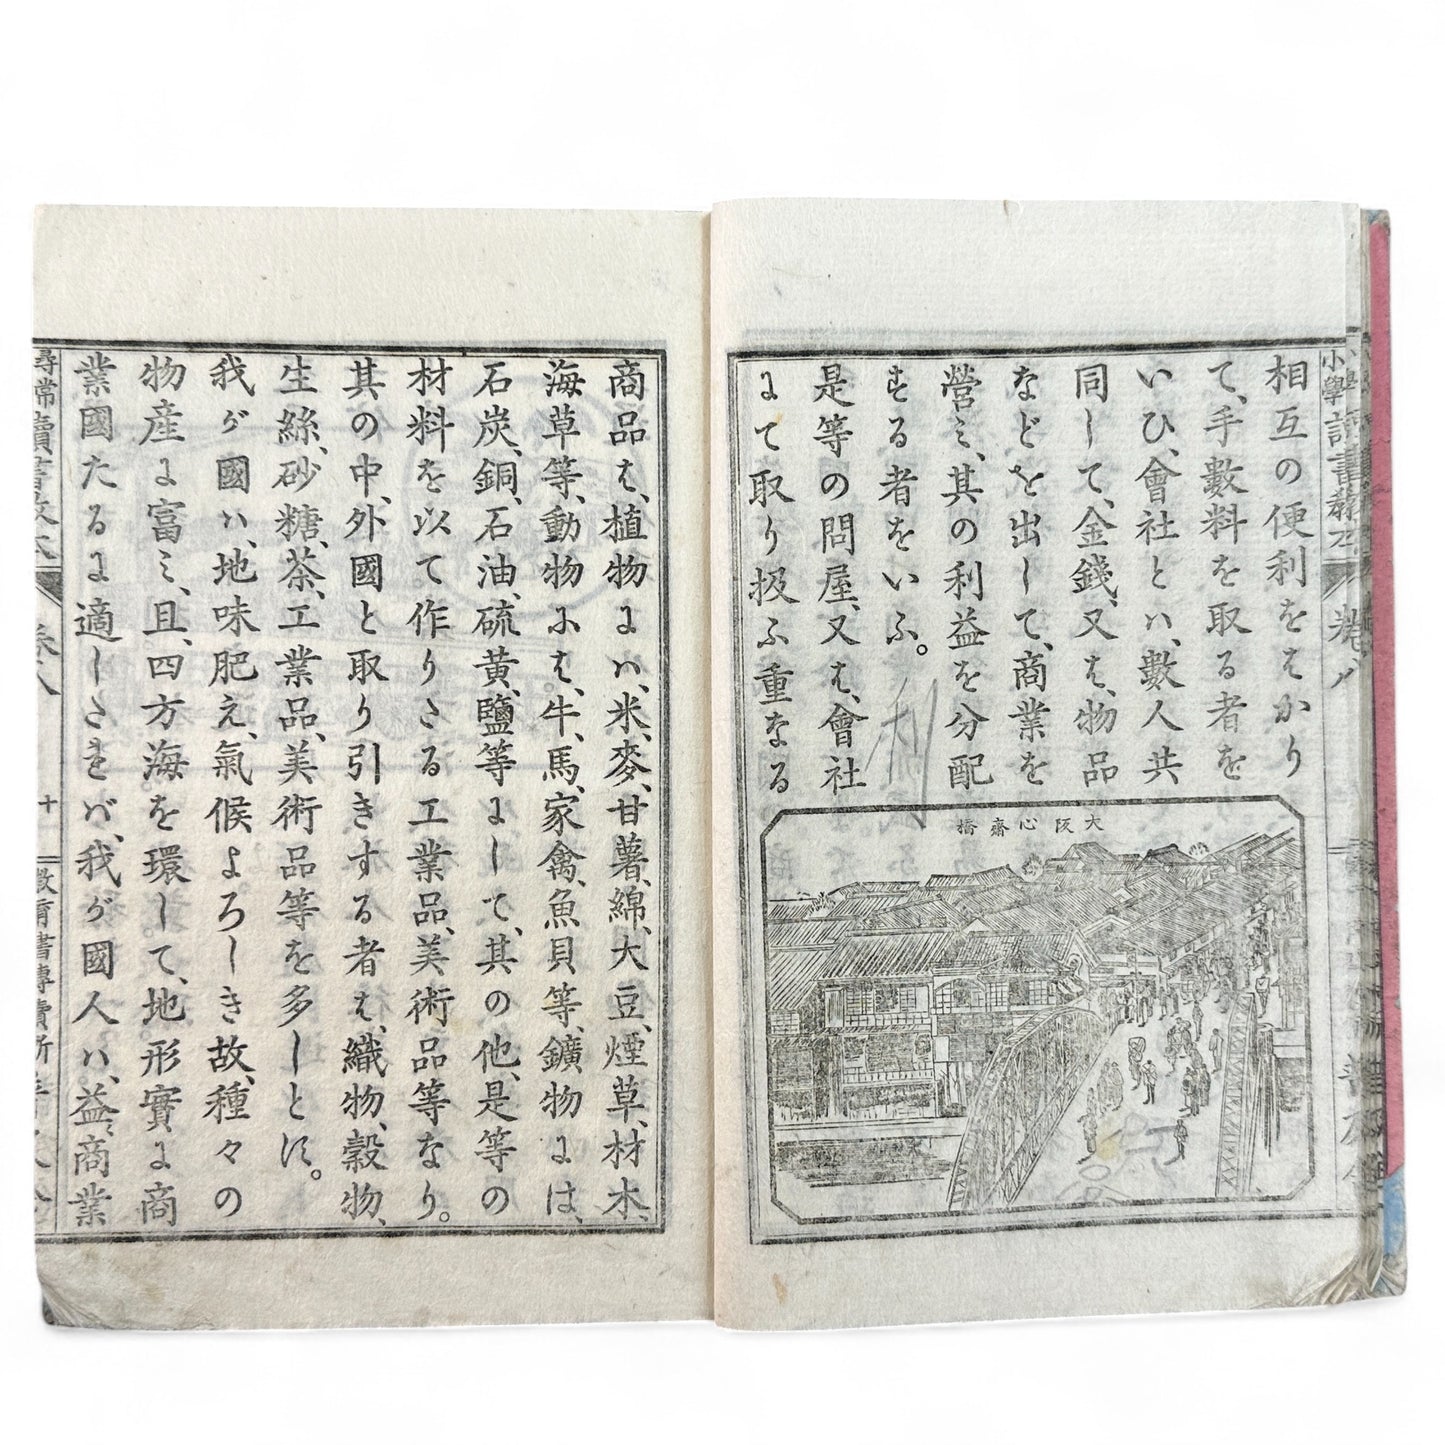 相互の便利をはかり
て、手數料を取る者を
いひ、會社とハ、數人共
同して、金錢、又は、物品
などを出して、商業を
營み、其の利益を分配
する者をいふ。
是等の問屋、又は、會社
にて取り扱ふ重なる
大阪心齋橋
商品は、植物にハ、米、麥、甘薯、綿、大豆、煙草、材木、
海草等、動物には、牛、馬、家禽、魚、貝等、鑛物には、
石炭、銅、石油、硫黄、鹽等にして、其の他、是等の
材料を以て作りたる工業品、美術品等なり。
其の中、外國と取り引きする者は、織物、穀物、
生絲、砂糖、茶、工業品、美術品等を多しとす。
我が國ハ、地味肥え、氣候よろしき故、種々の
物産に富み、且、四方海を環して、地形實に商
業國たるに適したれバ、我が國人ハ、益、商業
尋常讀書教本
卷八
十
教育書專賣所